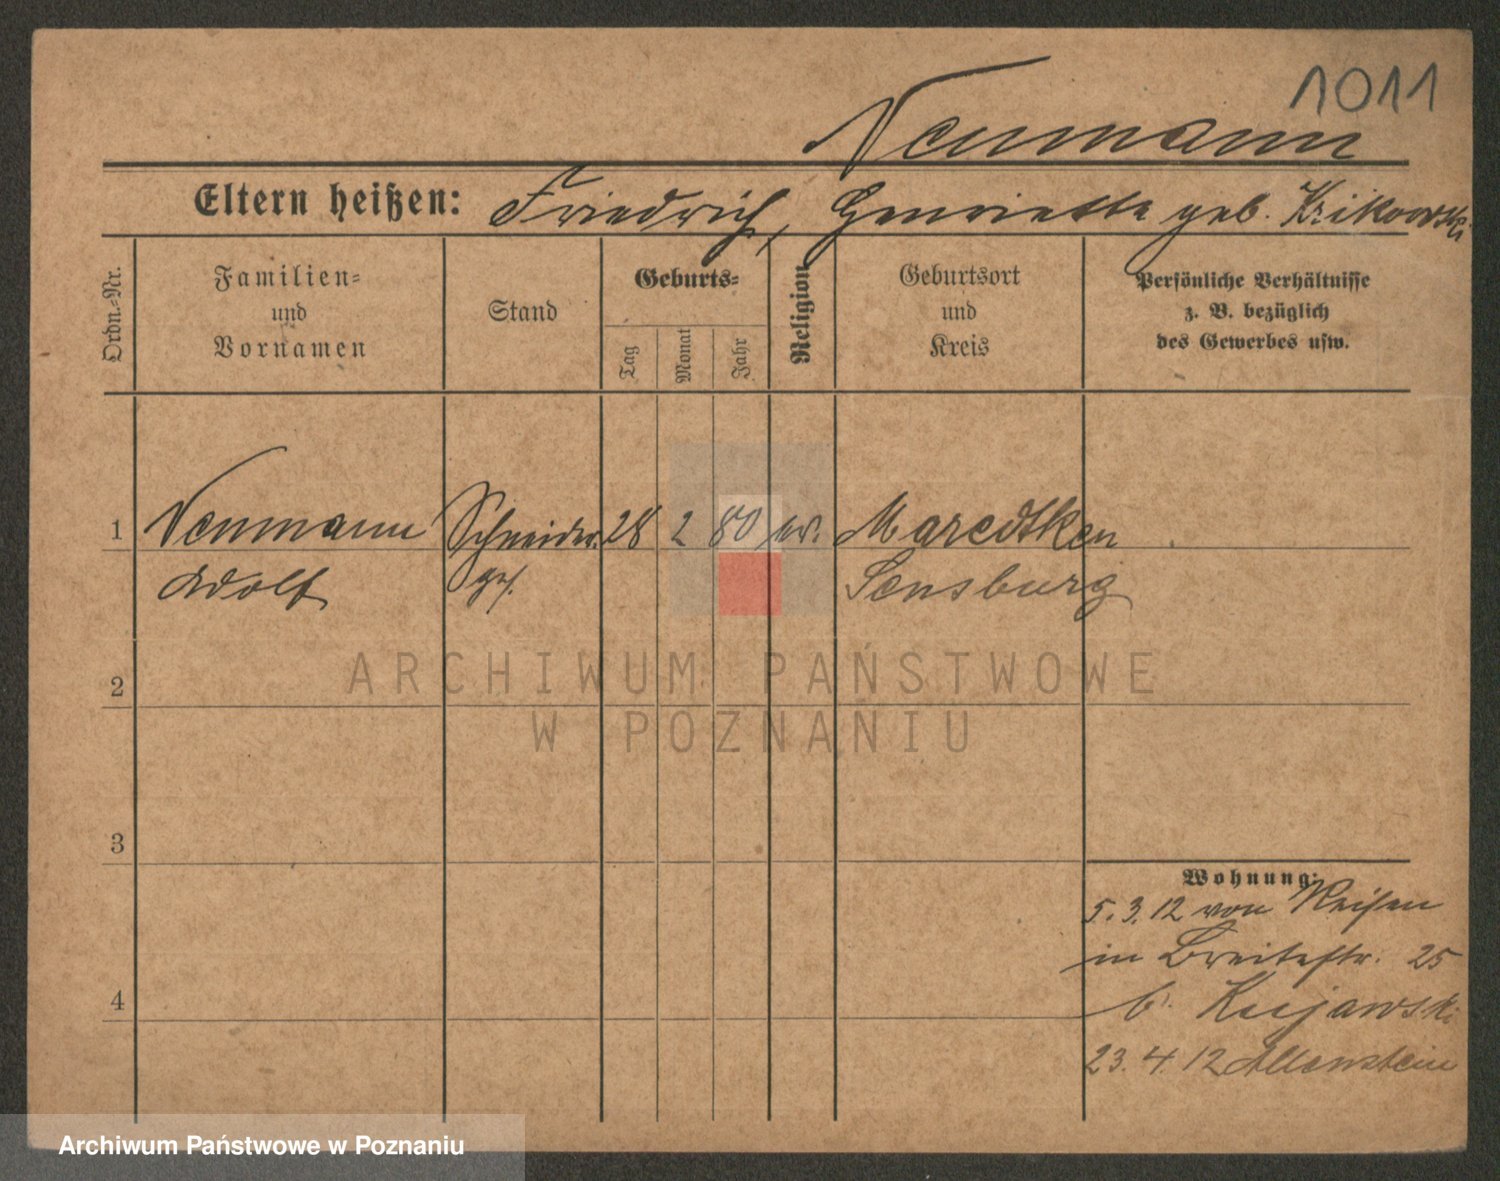 1011
Neumann
Eltern heißen: Friedrich, Henriette geb. Krikowski
Ordn.-Nr.
Familien-
und
Vornamen
Stand
Geburts-
Tag
Monat
Jahr
Religion
Geburtsort
und
Kreis
Persönliche Verhältnisse
z. B. bezüglich
des Gewerbes usw.
1 Neumann Schneider- 28 2 80 ev. Maredtken
Adolf ges. Sensburg
2
3
4
Wohnung:
5.3.12 von Reisen
in Breitestr. 25
b. Kujawski
23.4.12 Allenstein
ARCHIWUM PAŃSTWOWE
W POZNANIU
Archiwum Państwowe w Poznaniu